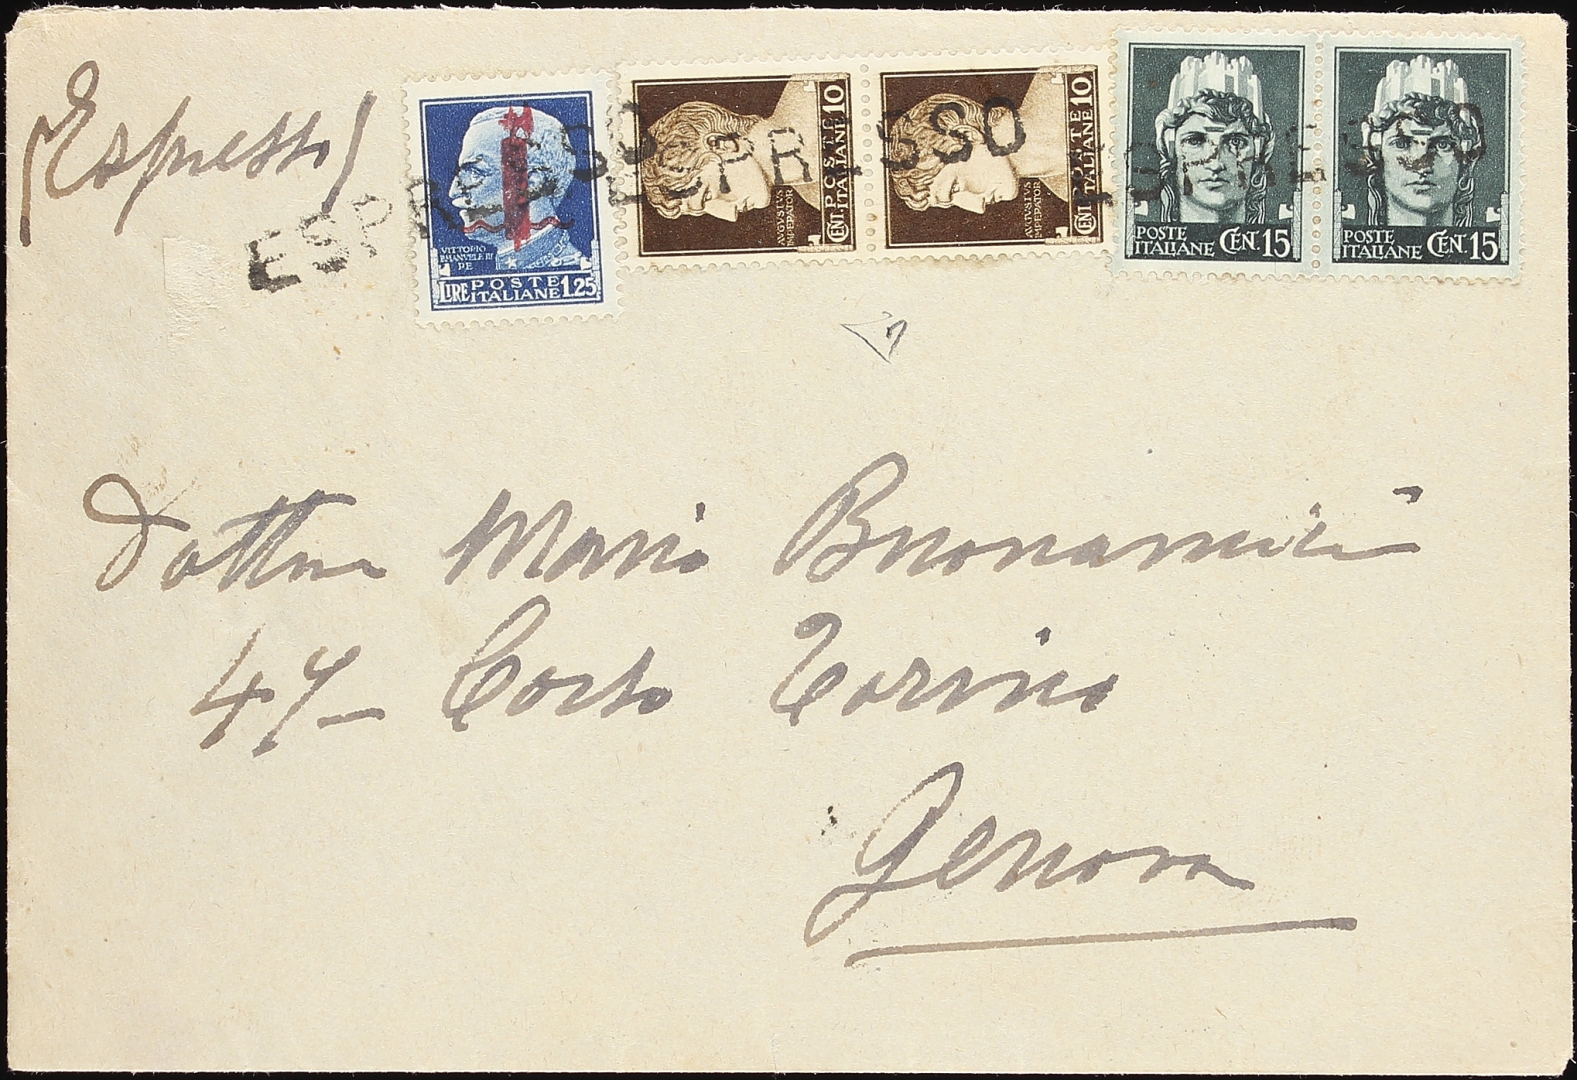 Espresso
ESPRESSO ESPRESSO ESPRESSO
VITTORIO
EMANUELE III
RE
LIRE POSTE ITALIANE 1.25
CENT. POSTE ITALIANE 10
AVGVSTVS
IMPERATOR
CENT. POSTE ITALIANE 10
AVGVSTVS
IMPERATOR
POSTE
ITALIANE CEN. 15
POSTE
ITALIANE CEN. 15
Dottore Mario Buonamici
47 – Corso Torino
Genova